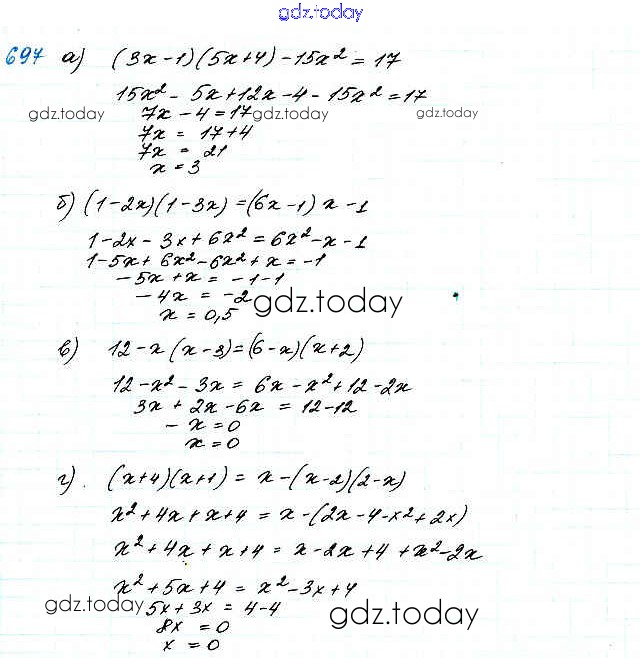 gdz.today
697 а) (3x-1)(5x+4)-15x²=17
15x²-5x+12x-4-15x²=17
7x-4=17
gdz.today gdz.today gdz.today
7x = 17+4
7x = 21
x = 3
б) (1-2x)(1-3x)=(6x-1)x-1
1-2x-3x+6x²=6x²-x-1
1-5x+6x²-6x²+x=-1
-5x+x=-1-1
-4x=-2
gdz.today
x=0,5
в) 12-x(x-3)=(6-x)(x+2)
12-x²-3x=6x-x²+12-2x
3x+2x-6x=12-12
-x=0
x=0
г). (x+4)(x+1)=x-(x-2)(2-x)
x²+4x+x+4=x-(2x-4-x²+2x)
x²+4x+x+4=x-2x+4+x²-2x
x²+5x+4=x²-3x+4
gdz.today gdz.today
5x+3x=4-4
8x=0
x=0